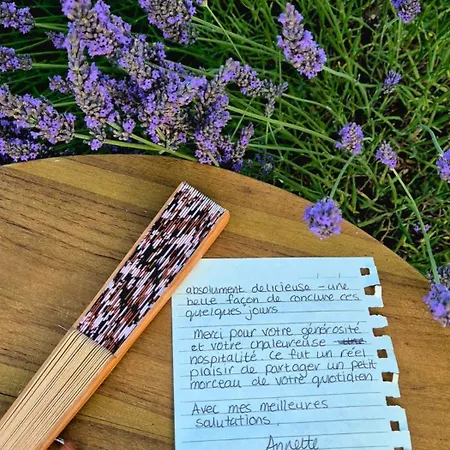 absolument delicieuse - une
belle façon de conclure ces
quelques jours.
Merci pour votre générosité
et votre chaleureuse
hospitalité. Ce fut un réel
plaisir de partager un petit
morceau de votre quotidien
Avec mes meilleures
salutations,
Annette